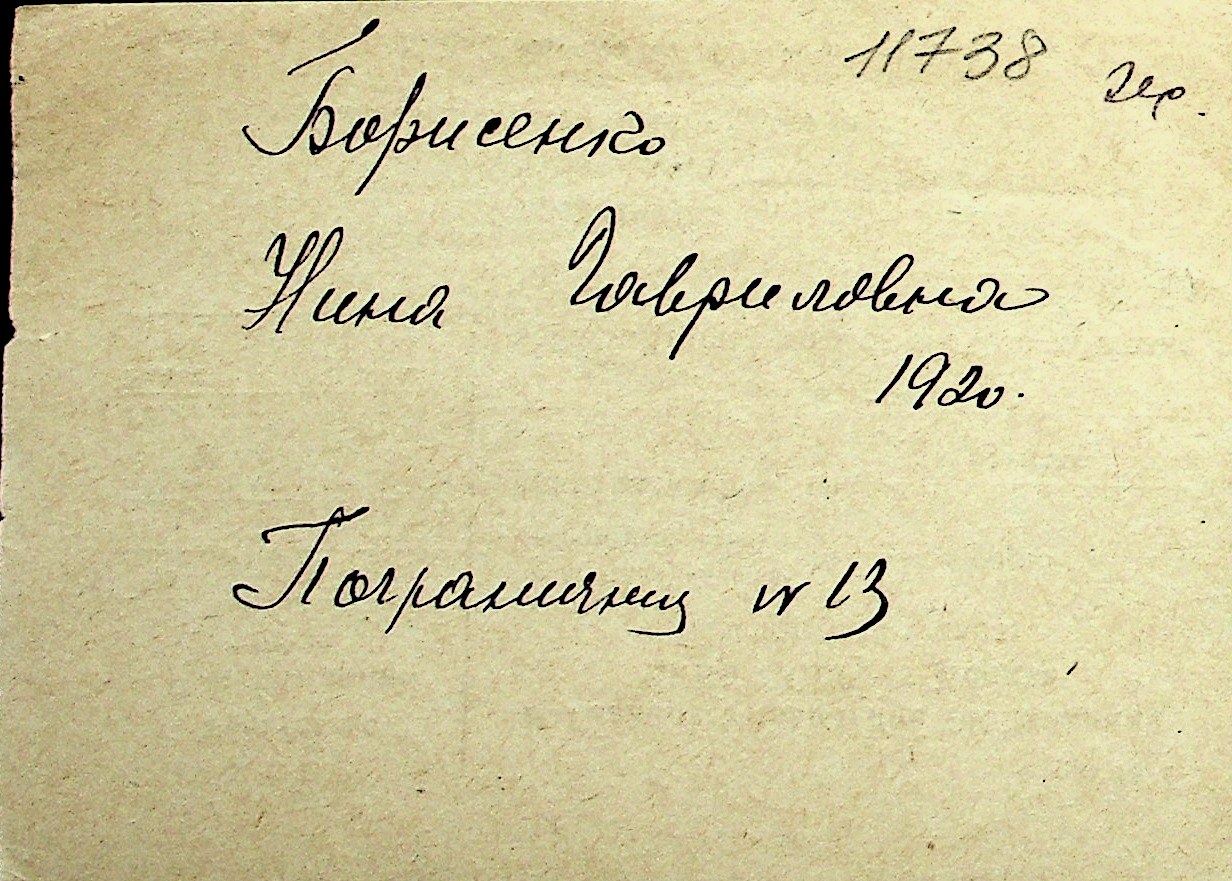 11738 гер.
Борисенко
Нина Гавриловна
1920.
Пограничн № 13